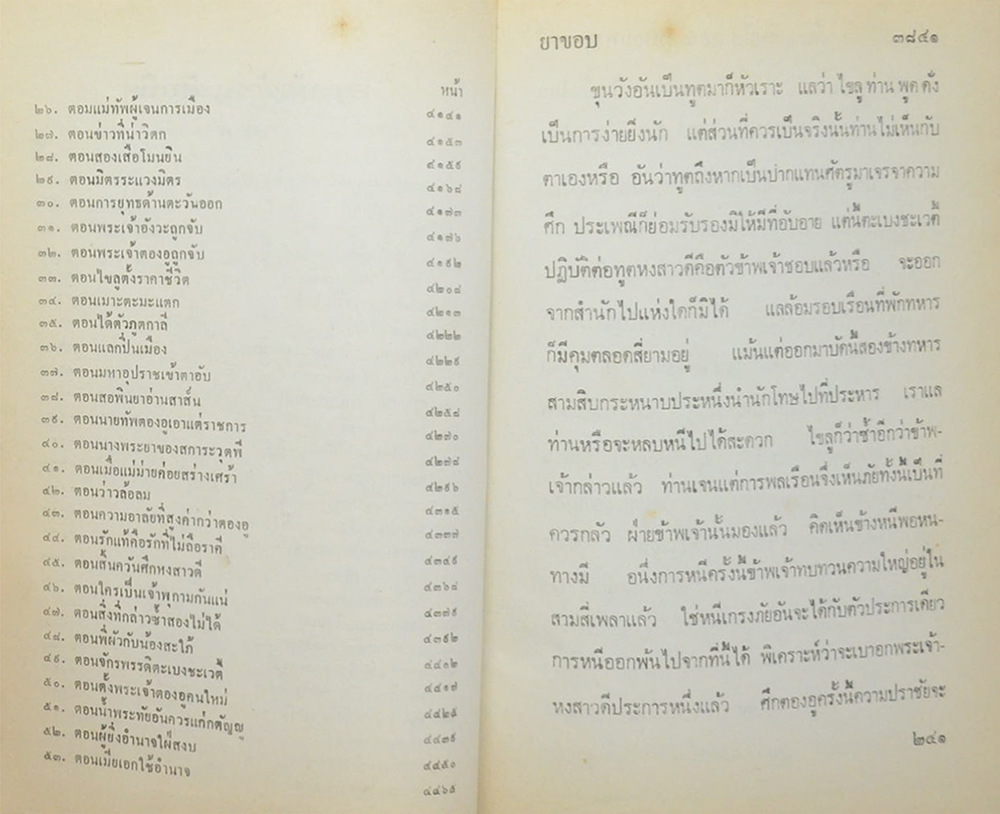 หน้า
๒๖. ตอมแม่ทัพผู้เจนการเมือง ๔๑๔๑
๒๗. ตอนข่าวที่น่าวิตก ๔๑๕๓
๒๘. ตอนสองเสือโมนยิน ๔๑๕๙
๒๙. ตอนมิตรระแวงมิตร ๔๑๖๘
๓๐. ตอนการยุทธด้านตะวันออก ๔๑๗๓
๓๑. ตอนพระเจ้าอังวะถูกจับ ๔๑๗๖
๓๒. ตอนพระเจ้าตองอูถูกจับ ๔๑๙๒
๓๓. ตอนไขลูตั้งราคาชีวิต ๔๒๐๘
๓๔. ตอนเมาะตะมะแตก ๔๒๑๓
๓๕. ตอนได้ตัวภูตกาลี ๔๒๒๒
๓๖. ตอนแลกปิ่นเมือง ๔๒๒๙
๓๗. ตอนมหาอุปราชเข้าตาอับ ๔๒๕๐
๓๘. ตอนสอพินยาอ่านสาส์น ๔๒๕๘
๓๙. ตอนนายทัพตองอูเอาแต่ราชการ ๔๒๗๐
๔๐. ตอนนางพระยาของสการะวุตพี ๔๒๗๘
๔๑. ตอนเมื่อแม่ม่ายค่อยสร่างเศร้า ๔๒๙๖
๔๒. ตอนว่าวล้อลม ๔๓๑๕
๔๓. ตอนความอาลัยที่สูงค่ากว่าตองอู ๔๓๓๗
๔๔. ตอนรักแท้คือรักที่ไม่ถือราคี ๔๓๔๙
๔๕. ตอนสิ้นควันศึกหงสาวดี ๔๓๖๘
๔๖. ตอนใครเป็นเจ้าพุกามกันแน่ ๔๓๗๙
๔๗. ตอนสิ่งที่กล่าวซ้ำสองไม่ได้ ๔๓๙๒
๔๘. ตอนพี่ผัวกับน้องสะใภ้ ๔๔๐๒
๔๙. ตอนจักรพรรดิตะเบงชะเวตี้ ๔๔๑๗
๕๐. ตอนตั้งพระเจ้าตองอูคนใหม่ ๔๔๒๕
๕๑. ตอนน้ำพระทัยอันควรแก่กตัญญู ๔๔๓๙
๕๒. ตอนผู้ยิ่งอำนาจใฝ่สงบ ๔๔๕๐
๕๓. ตอนเมียเอกใช้อำนาจ ๔๔๖๕
ยาขอบ ๓๘๔๑
ขุนวังอันเป็นทูตมาก็หัวเราะ แลว่า ไขลูท่านพูดดั่ง
เป็นการง่ายยิ่งนัก แต่ส่วนที่ควรเป็นจริงนั้นท่านไม่เห็นกับ
ตาเองหรือ อันว่าทูตถึงหากเป็นปากแทนศัตรูมาเจรจาความ
ศึก ประเพณีก็ย่อมรับรองมิให้มีที่อับอาย แต่นี่ตะเบงชะเวตี้
ปฏิบัติต่อทูตหงสาวดีคือตัวข้าพเจ้าชอบแล้วหรือ จะออก
จากสำนักไปแห่งใดก็มิได้ แลล้อมรอบเรือนที่พักทหาร
ก็มีคุมตลอดสี่ยามอยู่ แม้นแต่ออกมาบัดนี้สองข้างทหาร
สามสิบกระหนาบประหนึ่งนำนักโทษไปที่ประหาร เราแล
ท่านหรือจะหลบหนีไปได้สะดวก ไขลูก็ว่าซ้ำอีกว่าข้าพ-
เจ้ากล่าวแล้ว ท่านเจนแต่การพลเรือนจึ่งเห็นภัยทั้งนี้เป็นที่
ควรกลัว ฝ่ายข้าพเจ้านั้นมองแล้ว คิดเห็นช้างหนีพอหน-
ทางมี อนึ่งการหนีครั้งนี้ข้าพเจ้าทบทวนความใหญ่อยู่ใน
สามสี่เพลาแล้ว ใช่หนีเกรงภัยอันจะได้กับตัวประการเดียว
การหนีออกพ้นไปจากที่นี้ได้ พิเคราะห์ว่าจะเบาอกพระเจ้า-
หงสาวดีประการหนึ่งแล้ว ศึกตองอูครั้งนี้ความปราชัยจะ
๒๔๑